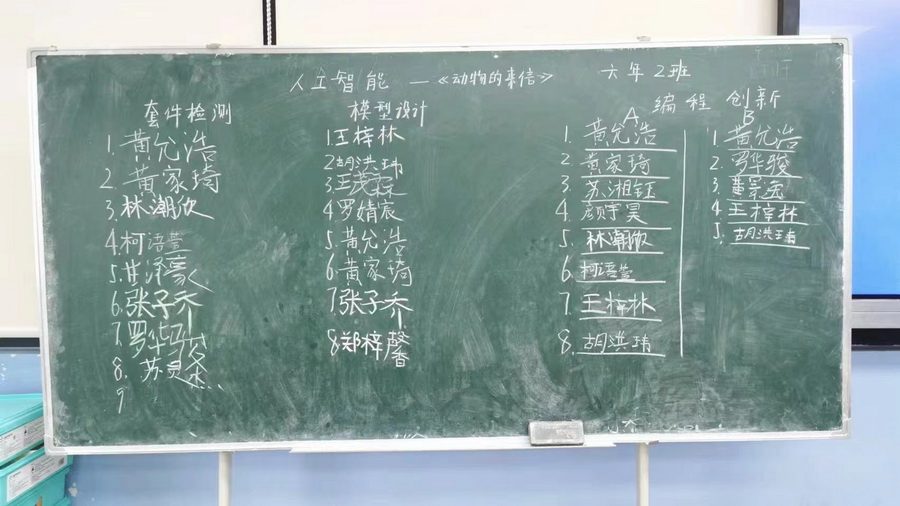 人工智能 —《动物的来信》 六年2班
套件检测
1. 黄允浩
2. 黄家琦
3. 林潮欣
4. 柯语萱
5. 甘泽豪
6. 张子乔
7. 罗华骏
8. 苏灵
9
模型设计
1. 王梓林
2 胡洪玮
3. 王茂
4 罗婧宸
5. 黄允浩
6. 黄家琦
7 张子乔
8. 郑梓馨
编程创新
A
1. 黄允浩
2 黄家琦
3. 苏湘钰
4. 颜宇昊
5. 林潮欣
6. 柯语萱
7. 王梓林
8. 胡洪玮
B
1. 黄允浩
2. 罗华骏
3. 黄
4. 王梓林
5. 胡洪玮